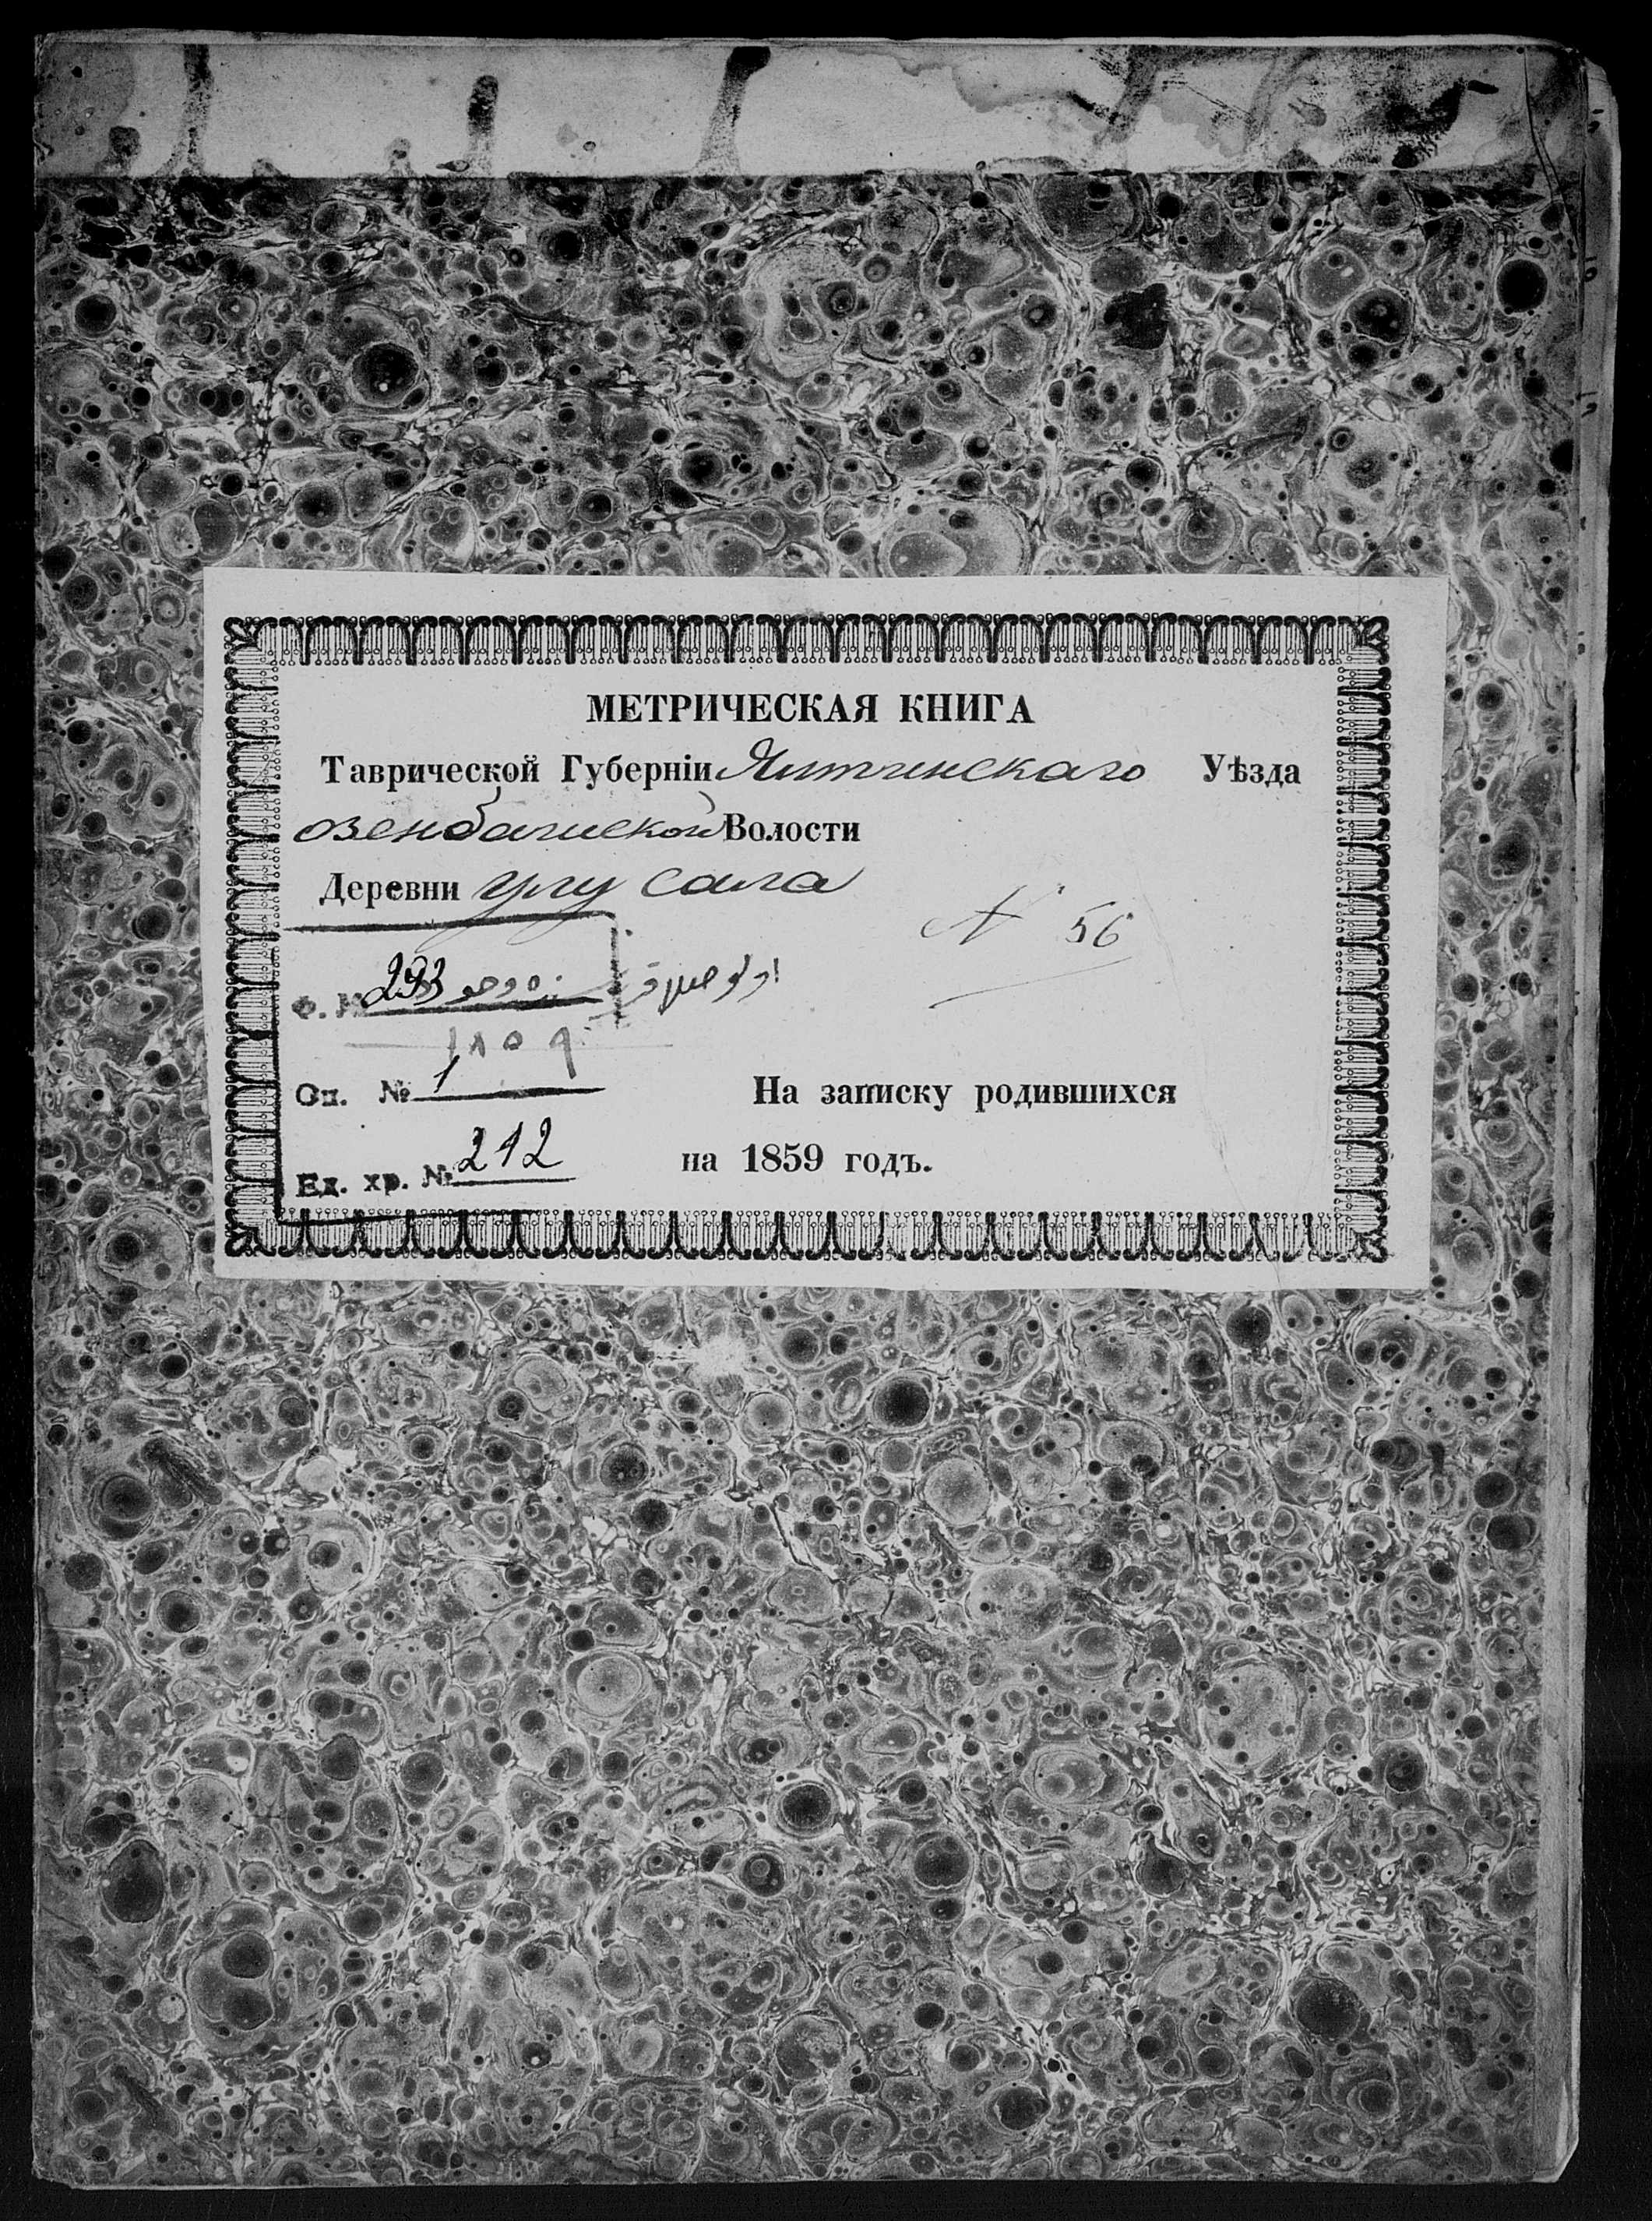 МЕТРИЧЕСКАЯ КНИГА
Таврической Губерніи Ялтинскаго Уѣзда
озенбашской Волости
Деревни улу сала
№ 56
Ф. № 293
Оп. № 1
На записку родившихся
Ед. хр. № 212
на 1859 годъ.